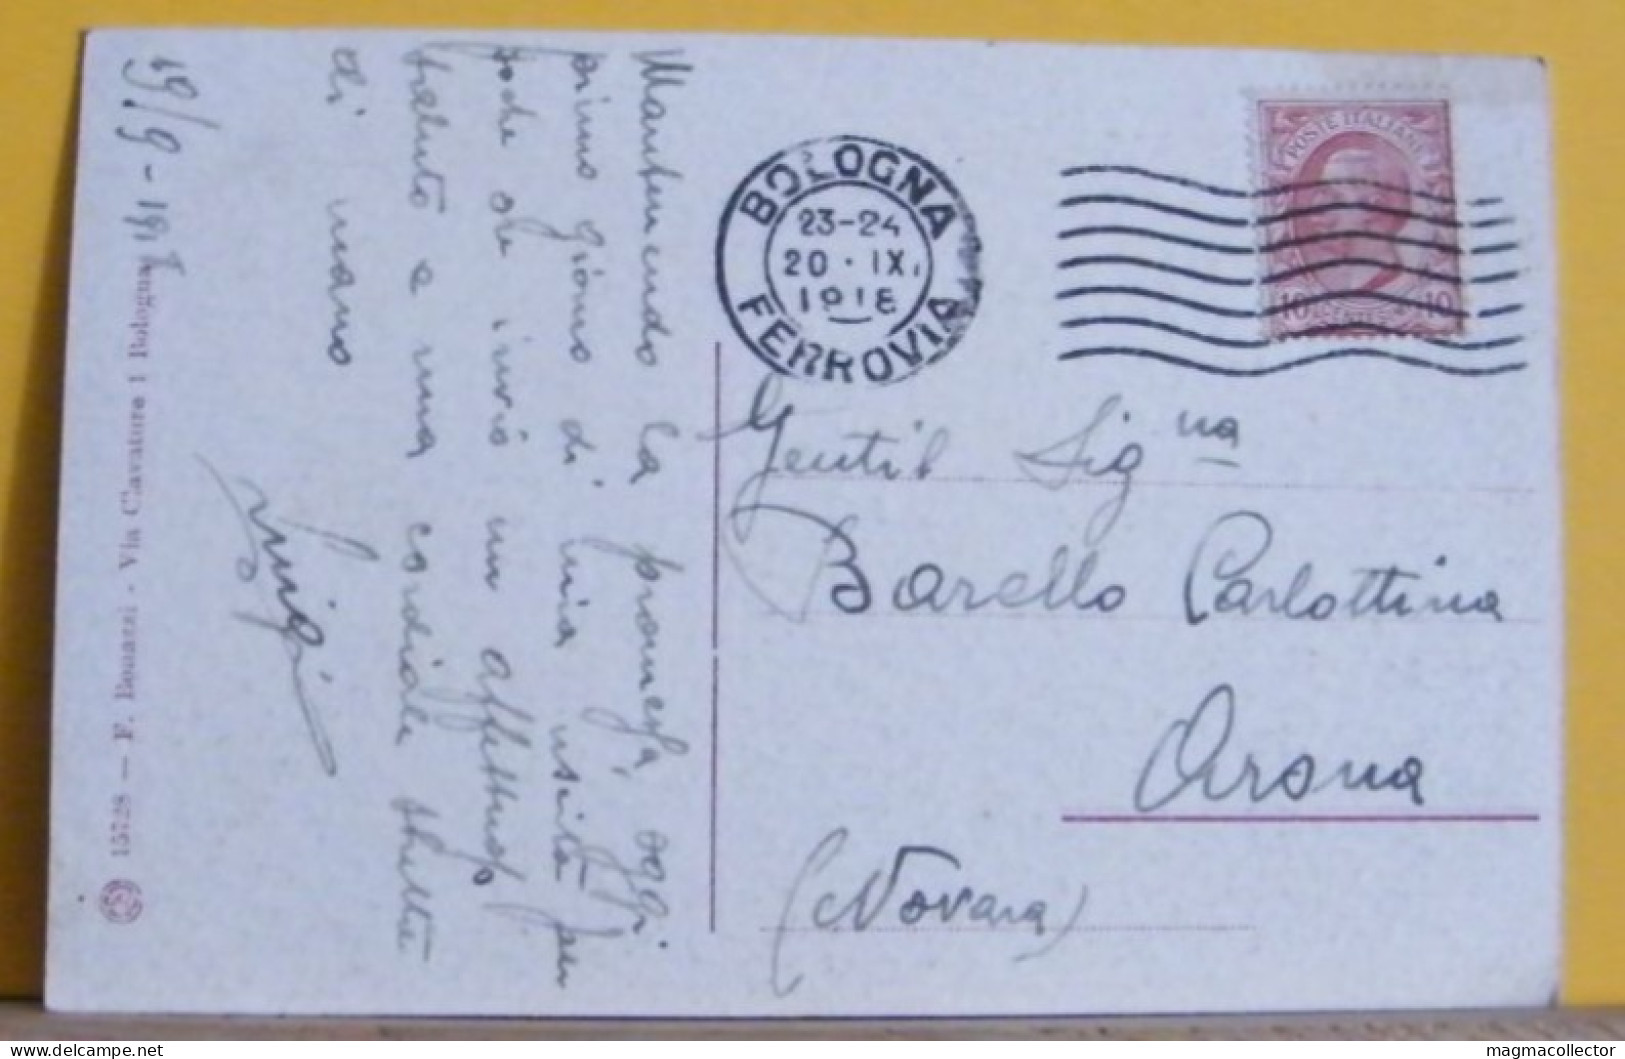 19/9-1918
Mantenendo la promessa, oggi
primo giorno di mia uscita per
poche ore invio un affettuoso
saluto e una cordiale stretta
di mano
Luigi
15728 — F. Bonazzi - Via Cavature 1 Bologna
BOLOGNA
23-24
20 · IX.
1918
FERROVIA
POSTE ITALIANE
10 CENT. 10
Gentil Signa
Barello Carlottina
Arona
(Novara)
delcampe.net
magmacollector